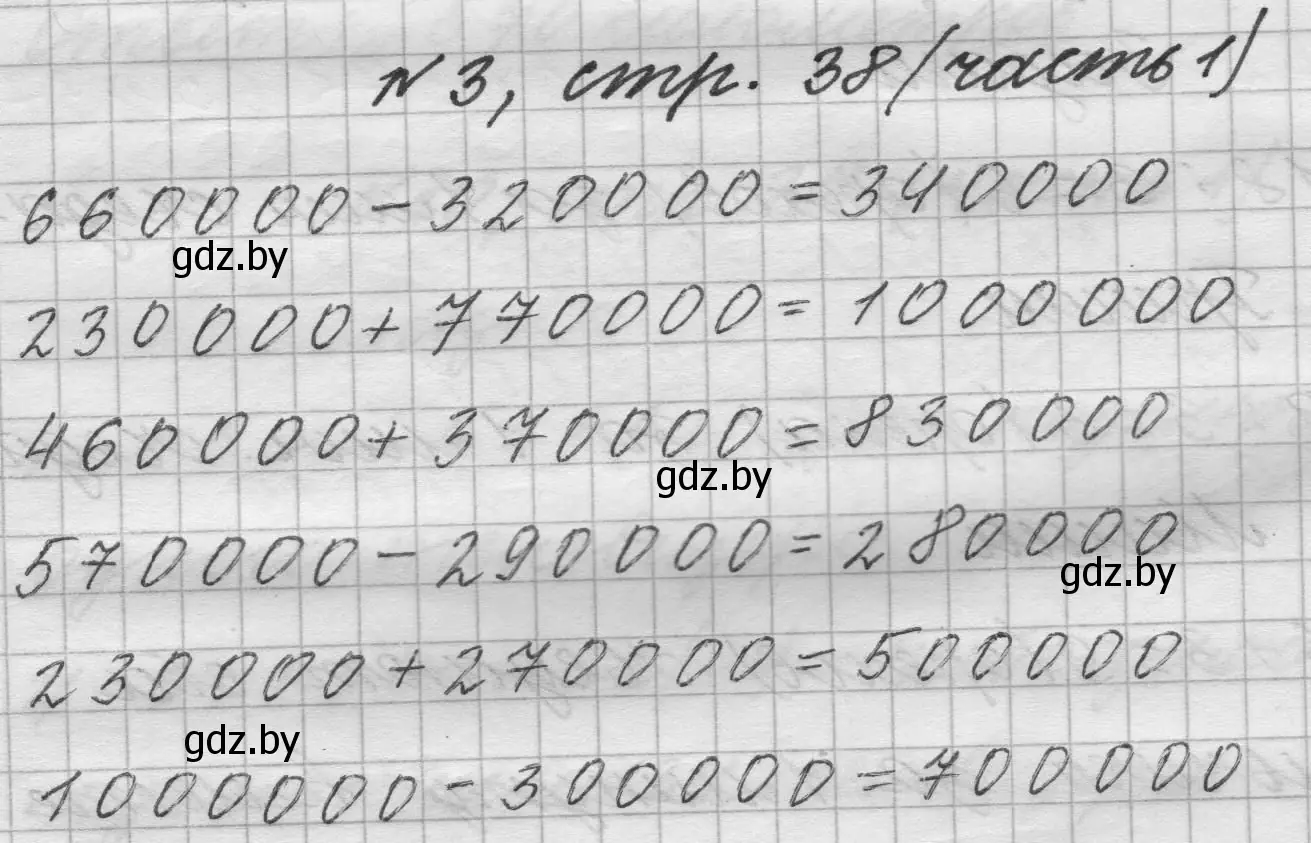 № 3, стр. 38 (часть 1)
660000 - 320000 = 340000
gdz.by
230000 + 770000 = 1000000
460000 + 370000 = 830000
gdz.by
570000 - 290000 = 280000
gdz.by
230000 + 270000 = 500000
gdz.by
1000000 - 300000 = 700000